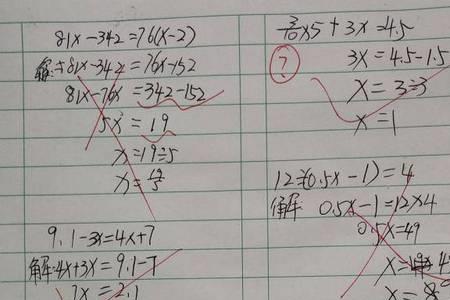 81x-342=76(x-2)
解:81x-342=76x-152
81x-76x=342-152
5x=19
x=19÷5
x=19/5
9.1-3x=4x+7
解:4x+3x=9.1-7
7x=2.1
3/10×5+3x=4.5
?
3x=4.5-1.5
x=3÷3
x=1
12÷(0.5x-1)=4
解: 0.5x-1=12×4
0.5x=49